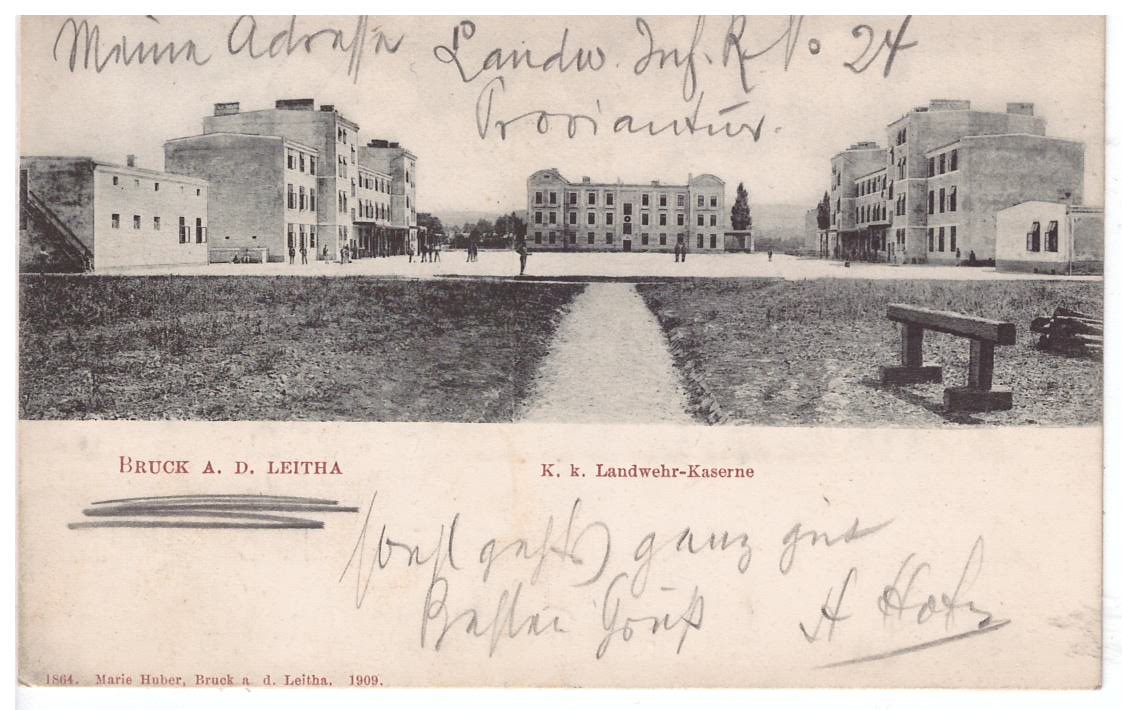 Meine Adresse Landw. Inf. R. No 24
Proviantur.
BRUCK A. D. LEITHA
K. k. Landwehr-Kaserne
sonst geht's ganz gut
Besten Gruß
1864. Marie Huber, Bruck a. d. Leitha. 1909.